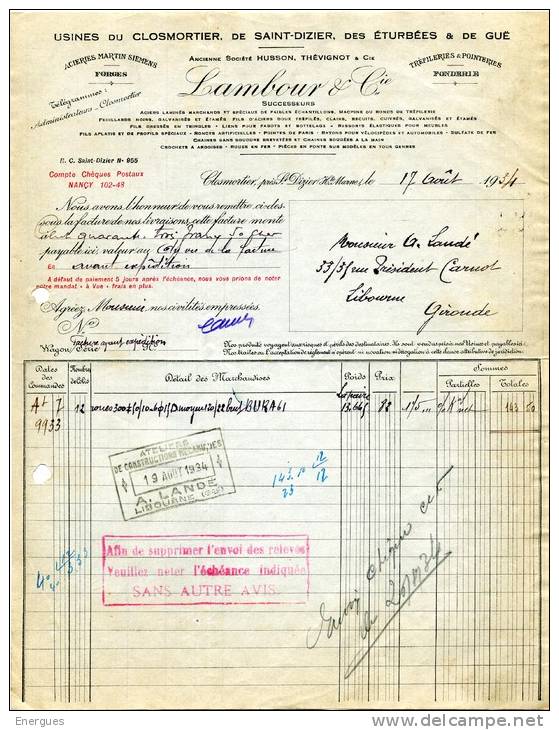 USINES DU CLOSMORTIER, DE SAINT-DIZIER, DES ÉTURBÉES & DE GUË
ACIERIES MARTIN SIEMENS
FORGES
ANCIENNE SOCIÉTÉ HUSSON, THÉVIGNOT & CIE
TRÉFILERIES & POINTERIES
FONDERIE
Lambour & Cie
SUCCESSEURS
Télégrammes:
Administrateurs-Closmortier
ACIERS LAMINÉS MARCHANDS ET SPÉCIAUX DE PAQUES ÉCHANTILLONS, MACHINE OU RONDS DE TRÉFILERIE
FEUILLARDS NOIRS, GALVANISÉS ET ÉTAMÉS FILS D'ACIERS DOUX TRÉFILÉS, CLAIRS, RECUITS, CUIVRÉS, GALVANISÉS ET ÉTAMÉS
FILS DRESSÉS EN TRINGLES - LIENS POUR FAGOTS ET BOTTELAGE - RESSORTS ÉLASTIQUES POUR MEUBLES
FILS APLATIS ET DE PROFILS SPÉCIAUX - RONCES ARTIFICIELLES - POINTES DE PARIS - RAYONS POUR VÉLOCIPÈDES ET AUTOMOBILES - SULFATE DE FER
CHAINES SANS SOUDURE BREVETÉES ET CHAINES SOUDÉES A LA MAIN
CROCHETS A ARDOISES - ROUES EN FER - PIÈCES EN FONTE SUR MODÈLES EN TOUS GENRES
R. C. Saint-Dizier N° 955
Compte Chèques Postaux
NANCY 102-48
Closmortier, près St Dizier (Hte Marne), le 17 Août 1934
Nous avons l'honneur de vous remettre ci-des-
sous la facture de nos livraisons, cette facture monte
payable ici valeur au
En avant expédition
A défaut de paiement 5 jours après l'échéance, nous vous prions de noter
notre mandat « à Vue » frais en plus.
Monsieur A. Landé
33/35 rue Président Carnot
Libourne
Gironde
Agréez Monsieur, nos civilités empressées.
N°
Facture avant expédition
Wagon, Série N°
Nos produits voyagent aux risques et périls des destinataires. Ils sont vendus pris en nos Usines et payables ici
Nos traites ou l'acceptation de règlement n'opèrent ni novation ni dérogation à cette clause attributive de juridiction.
Dates
des
Commandes
Nombre
de Colis
Détail des Marchandises
Poids
Prix
Sommes
Partielles
Totales
7
9933
12
BURA61
13.665
82
175
net
143 50
ATELIERS
DE CONSTRUCTIONS MÉCANIQUES
19 AOUT 1934
A. LANDE
LIBOURNE (Gde)
12
12
23
Afin de supprimer l'envoi des relevés
Veuillez noter l'échéance indiquée
SANS AUTRE AVIS
Energues
www.delcampe.net